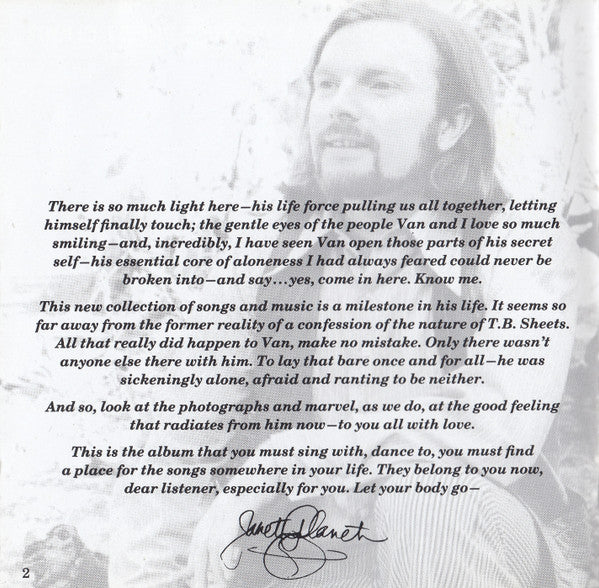 There is so much light here—his life force pulling us all together, letting
himself finally touch; the gentle eyes of the people Van and I love so much
smiling—and, incredibly, I have seen Van open those parts of his secret
self—his essential core of aloneness I had always feared could never be
broken into—and say...yes, come in here. Know me.
This new collection of songs and music is a milestone in his life. It seems so
far away from the former reality of a confession of the nature of T.B. Sheets.
All that really did happen to Van, make no mistake. Only there wasn't
anyone else there with him. To lay that bare once and for all—he was
sickeningly alone, afraid and ranting to be neither.
And so, look at the photographs and marvel, as we do, at the good feeling
that radiates from him now—to you all with love.
This is the album that you must sing with, dance to, you must find
a place for the songs somewhere in your life. They belong to you now,
dear listener, especially for you. Let your body go—
Janet Planet
2